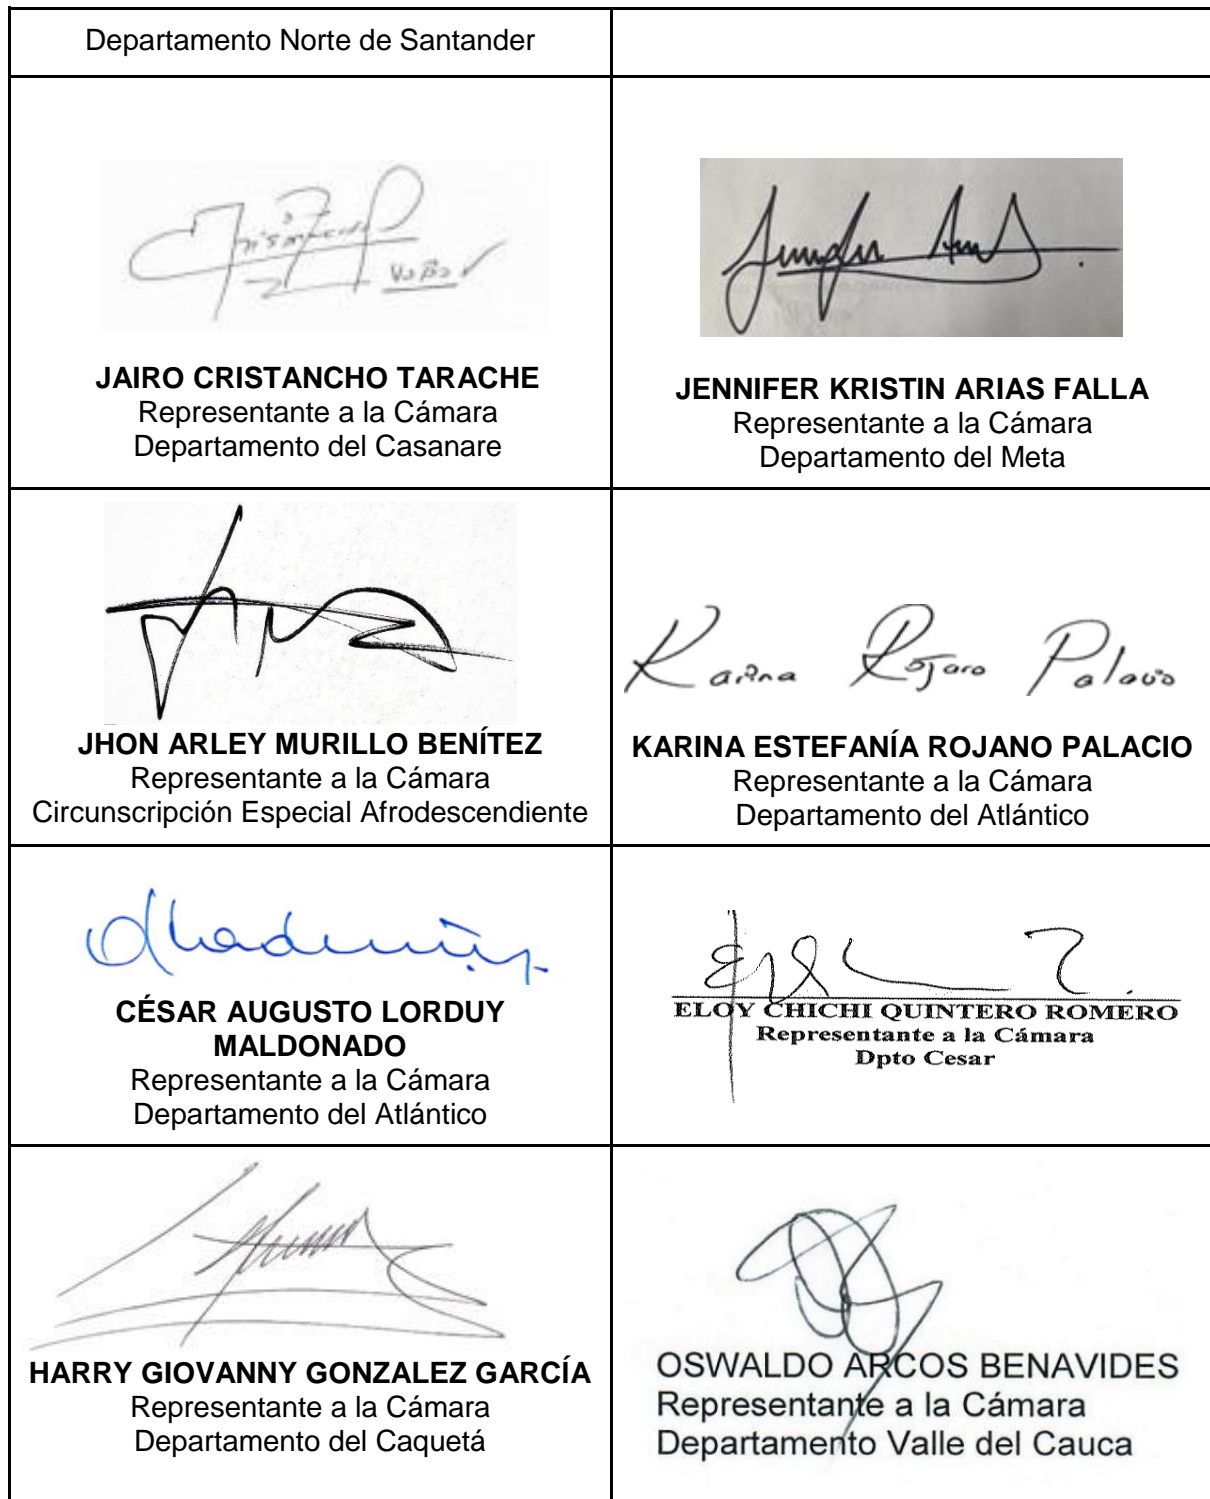 Departamento Norte de Santander
VoBo
JAIRO CRISTANCHO TARACHE
Representante a la Cámara
Departamento del Casanare
JENNIFER KRISTIN ARIAS FALLA
Representante a la Cámara
Departamento del Meta
JHON ARLEY MURILLO BENÍTEZ
Representante a la Cámara
Circunscripción Especial Afrodescendiente
Karina Rojano Palacio
KARINA ESTEFANÍA ROJANO PALACIO
Representante a la Cámara
Departamento del Atlántico
CÉSAR AUGUSTO LORDUY
MALDONADO
Representante a la Cámara
Departamento del Atlántico
ELOY CHICHI QUINTERO ROMERO
Representante a la Cámara
Dpto Cesar
HARRY GIOVANNY GONZALEZ GARCÍA
Representante a la Cámara
Departamento del Caquetá
OSWALDO ARCOS BENAVIDES
Representante a la Cámara
Departamento Valle del Cauca